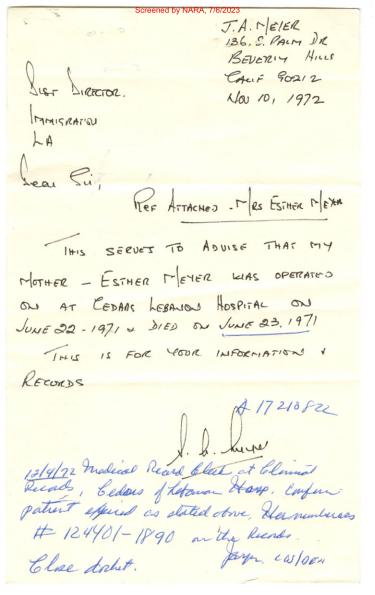 Screened by NARA, 7/6/2023
J. A. MEIER
136, S. PALM DR
BEVERLY HILLS
CALIF 90212
NOV 10, 1972
DIST DIRECTOR.
IMMIGRATION
LA
Dear Sir,
REF ATTACHED - MRS ESTHER MEYER
THIS SERVES TO ADVISE THAT MY
MOTHER - ESTHER MEYER WAS OPERATED
ON AT CEDARS LEBANON HOSPITAL ON
JUNE 22-1971 & DIED ON JUNE 23, 1971
THIS IS FOR YOUR INFORMATION &
RECORDS
A 17210822
12/4/72 Medical Record Clerk at
Records, Cedars of Lebanon Hosp. confirm
patient expired as stated above. Her number was
# 124401-1890 on the records.
Close docket.